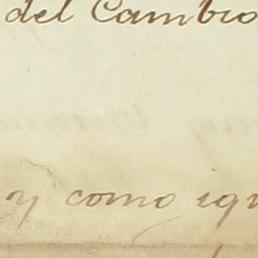 del Cambio
y como igu